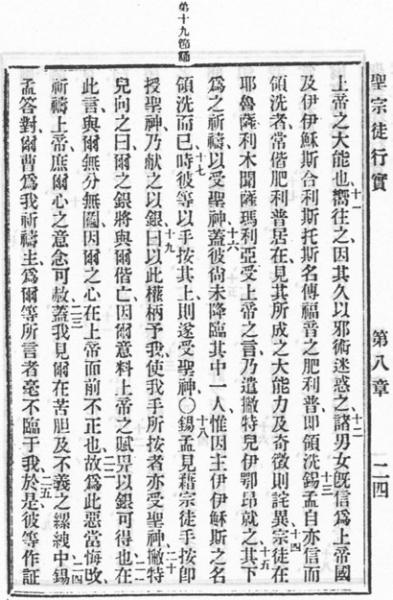 第十九節誦
聖宗徒行實　第八章　二四
上帝之大能也、十一嚮往之、因其久以邪術迷惑之、十二諸男女旣信為上帝國
及伊伊穌斯合利斯托斯名傳福音之肥利普、即領洗、十三錫孟自亦信而
領洗者、常偕肥利普居、在見其所成之大能力及奇徵、則詫異、十四宗徒在
耶魯薩利木聞薩瑪利亞受上帝之言、乃遣撇特兒伊鄂昂就之、十五其下
為之祈禱、以受聖神、十六蓋彼尚未降臨其中一人、惟因主伊伊穌斯之名
領洗而已、十七時彼等以手按其上、則遂受聖神、〇十八錫孟見藉宗徒手按、即
授聖神、乃献之以銀、十九曰、以此權柄予我、使我手所按者、亦受聖神、二十撇特
兒向之曰、爾之銀將與爾偕亡、因爾意料上帝之賦畀以銀可得也、二一在
此言、與爾無分無鬮、因爾之心在上帝面前不正也、二二故為此惡當悔改、
祈禱上帝、庶爾心之意念可赦、二三蓋我見爾在苦胆及不義之縲絏中、二四錫
孟答對、爾曹為我祈禱主、為爾等所言者毫不臨于我、二五於是彼等作証